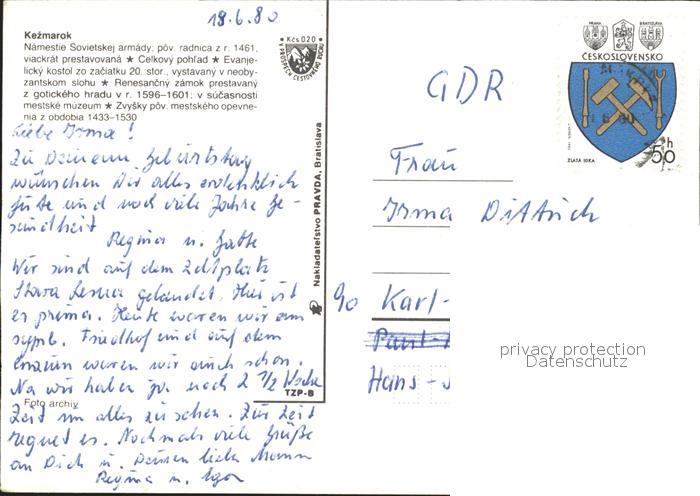 19.6.80
Kežmarok
Námestie Sovietskej armády: pôv. radnica z r. 1461,
viackrát prestavovaná ★ Celkový pohľad ★ Evanje-
lický kostol zo začiatku 20. stor., vystavaný v neoby-
zantskom slohu ★ Renesančný zámok prestavaný
z gotického hradu v r. 1596–1601: v súčasnosti
mestské múzeum ★ Zvyšky pôv. mestského opevne-
nia z obdobia 1433–1530
Kčs 020
Liebe Irma!
Zu Deinem Geburtstag
wünschen Dir alles erdenklich
Gute und noch viele Jahre Ge-
sundheit
Regina u. Gatte
Wir sind auf dem Zeltplatz
Stara Lesna gelandet. Hier ist
es prima. Heute waren wir am
symb. Friedhof und auf dem
waren wir auch schon.
Na wir haben ja noch 2 1/2 Woche
Zeit um alles zu sehen. Zur Zeit
regnet es. Nochmals viele Grüße
an Dich u. Deinen lieben Mann
Regina u. Igor
Foto archív
TZP-B
Nakladateľstvo PRAVDA, Bratislava
PRAHA
BRATISLAVA
ČESKOSLOVENSKO
ZLATÁ IDKA
50 h
GDR
Frau
Irma Dittrich
Karl-
Paul-
Hans-
privacy protection
Datenschutz